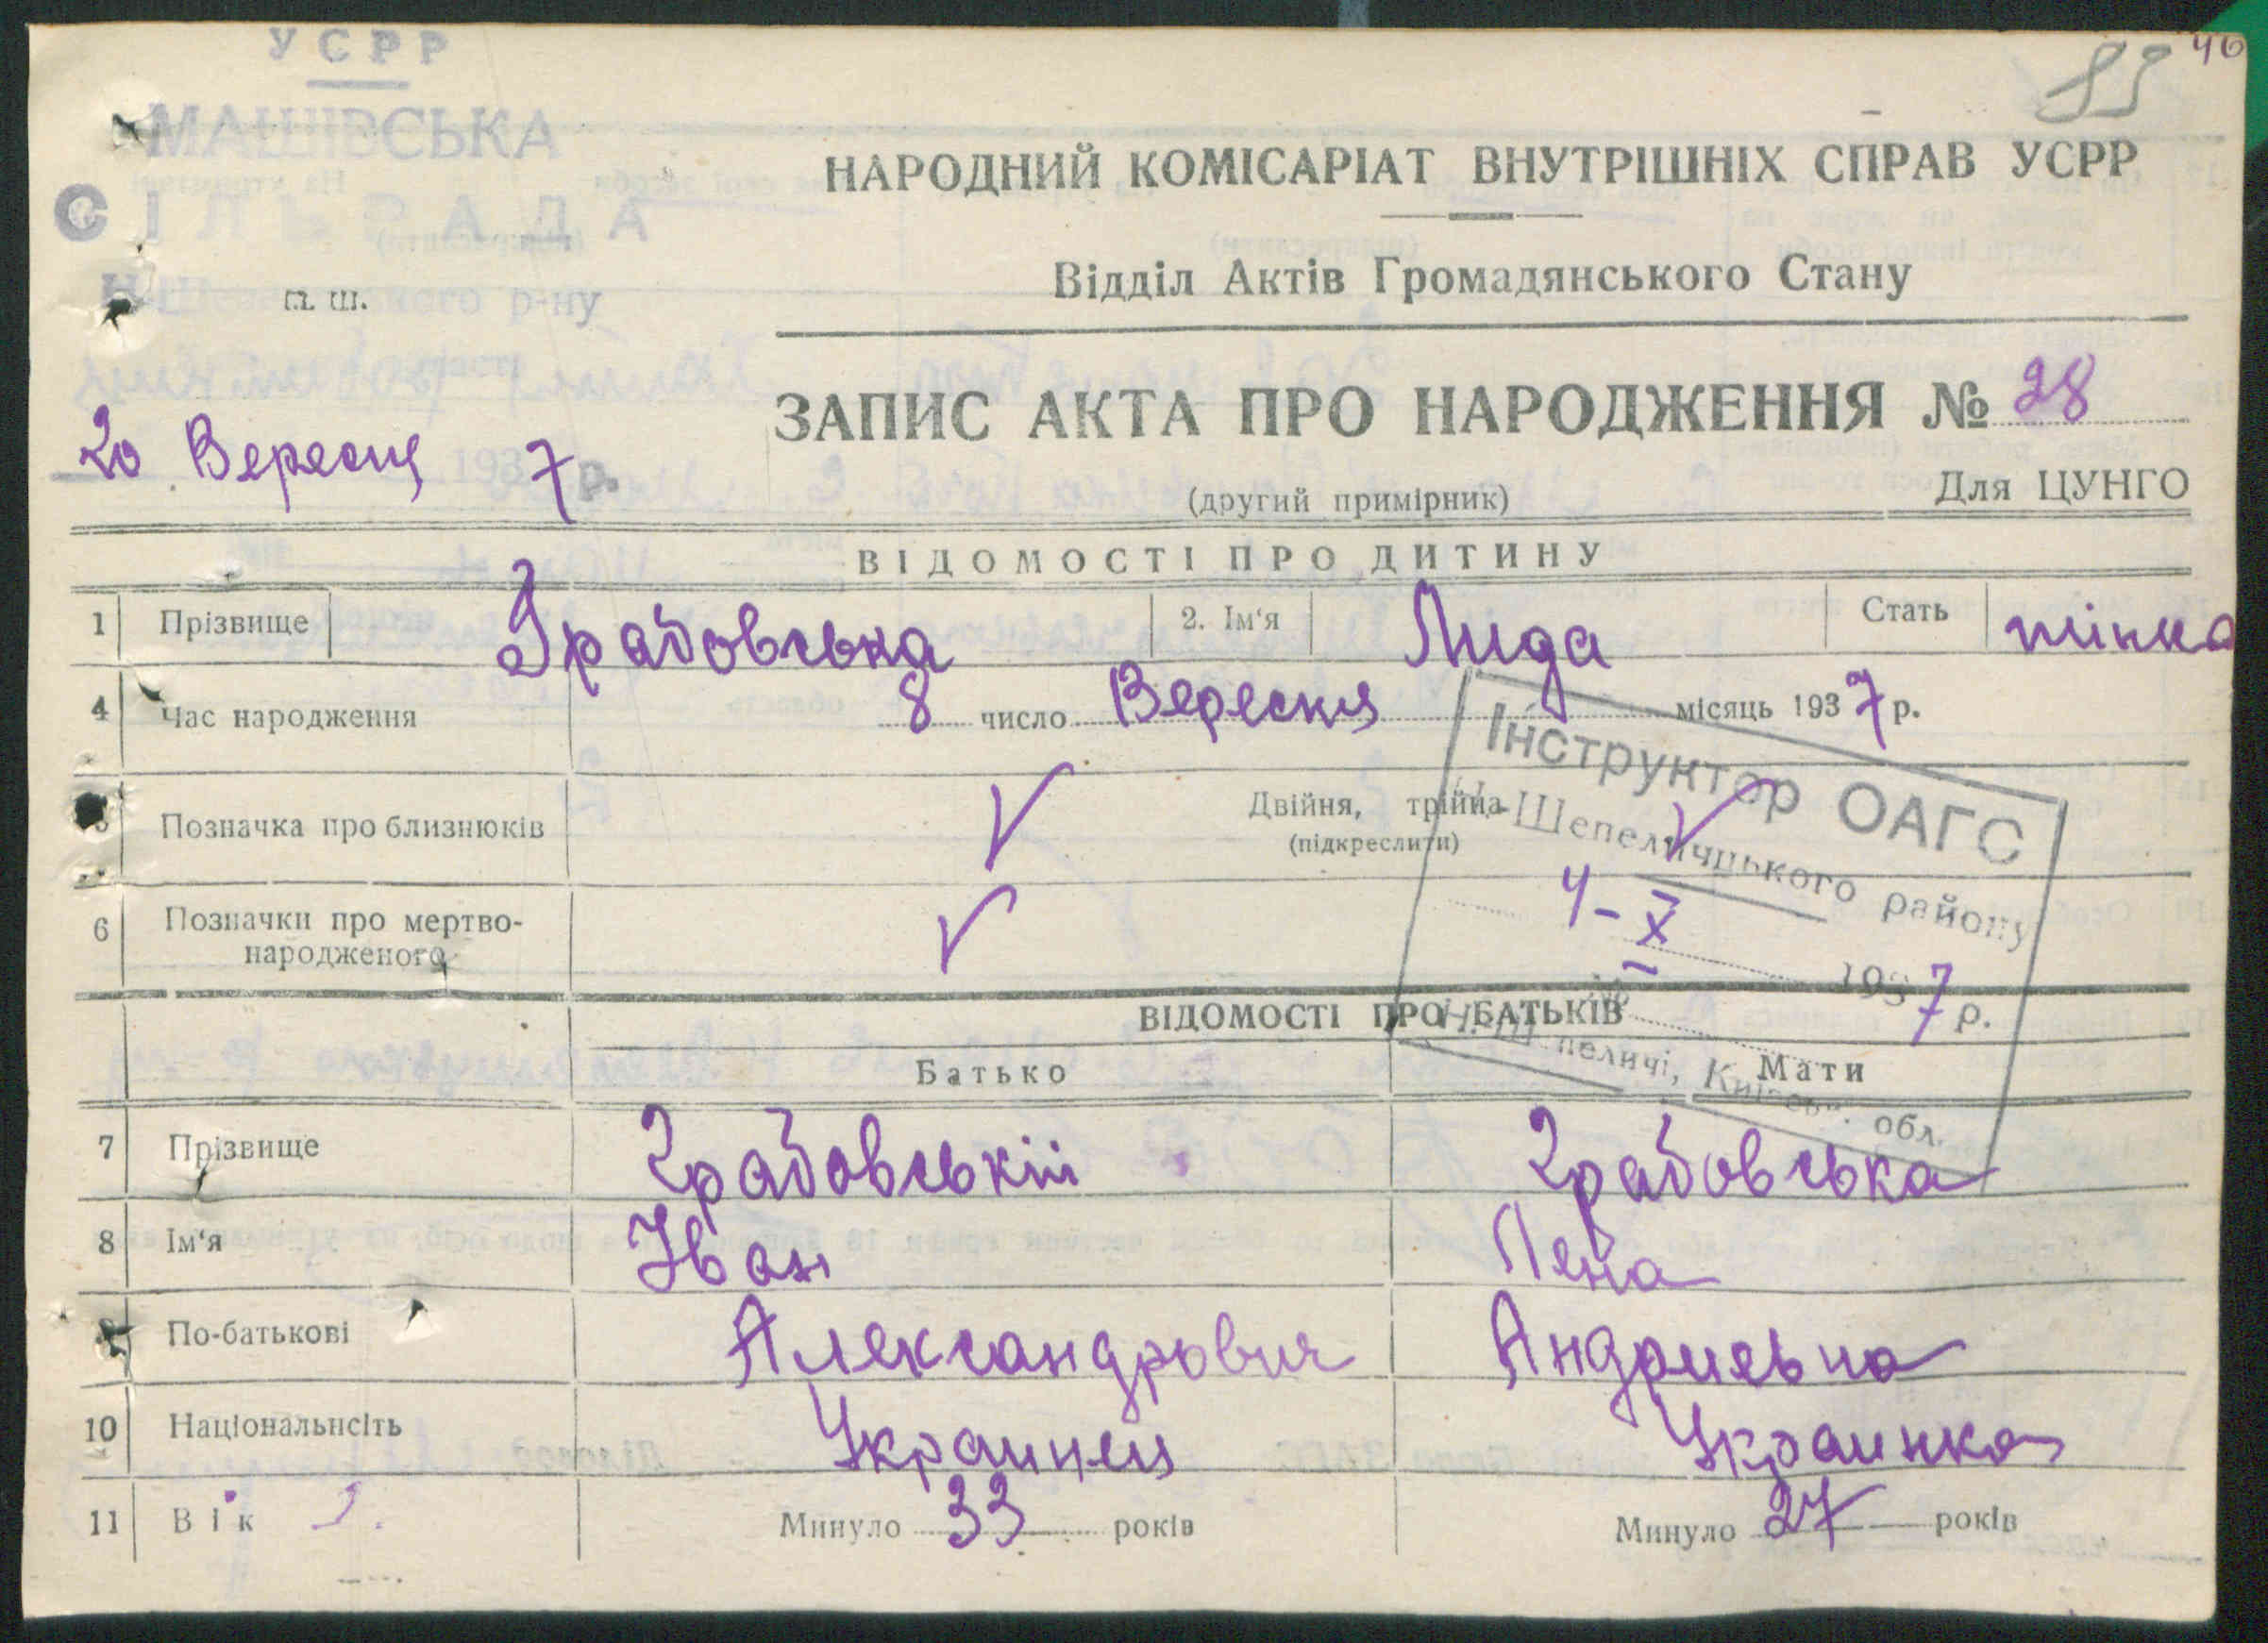 УСРР
46
89
МАШІВСЬКА
СІЛЬРАДА
Н-Шепелицького р-ну
п. ш.
НАРОДНИЙ КОМІСАРІАТ ВНУТРІШНІХ СПРАВ УСРР
Відділ Актів Громадянського Стану
20 Вересня 1937 р.
ЗАПИС АКТА ПРО НАРОДЖЕННЯ № 28
(другий примірник)
Для ЦУНГО
ВІДОМОСТІ ПРО ДИТИНУ
1 Прізвище Градовська 2. Ім‘я Лида Стать жінка
4 Час народження 8 число Вересня місяць 1937 р.
5 Позначка про близнюків Двійня, трійця
(підкреслити)
6 Позначки про мертво-
народженого
Інструктор ОАГС
Н-Шепеличцького району
4-X
1937 р.
№
Н.-Шепеличі, Київськ. обл.
ВІДОМОСТІ ПРО БАТЬКІВ
Батько Мати
7 Прізвище Градовській Градовська
8 Ім‘я Іван Лена
9 По-батькові Александрович Андриевна
10 Національнсіть Украинец Украинка
11 Вік Минуло 33 років Минуло 27 років